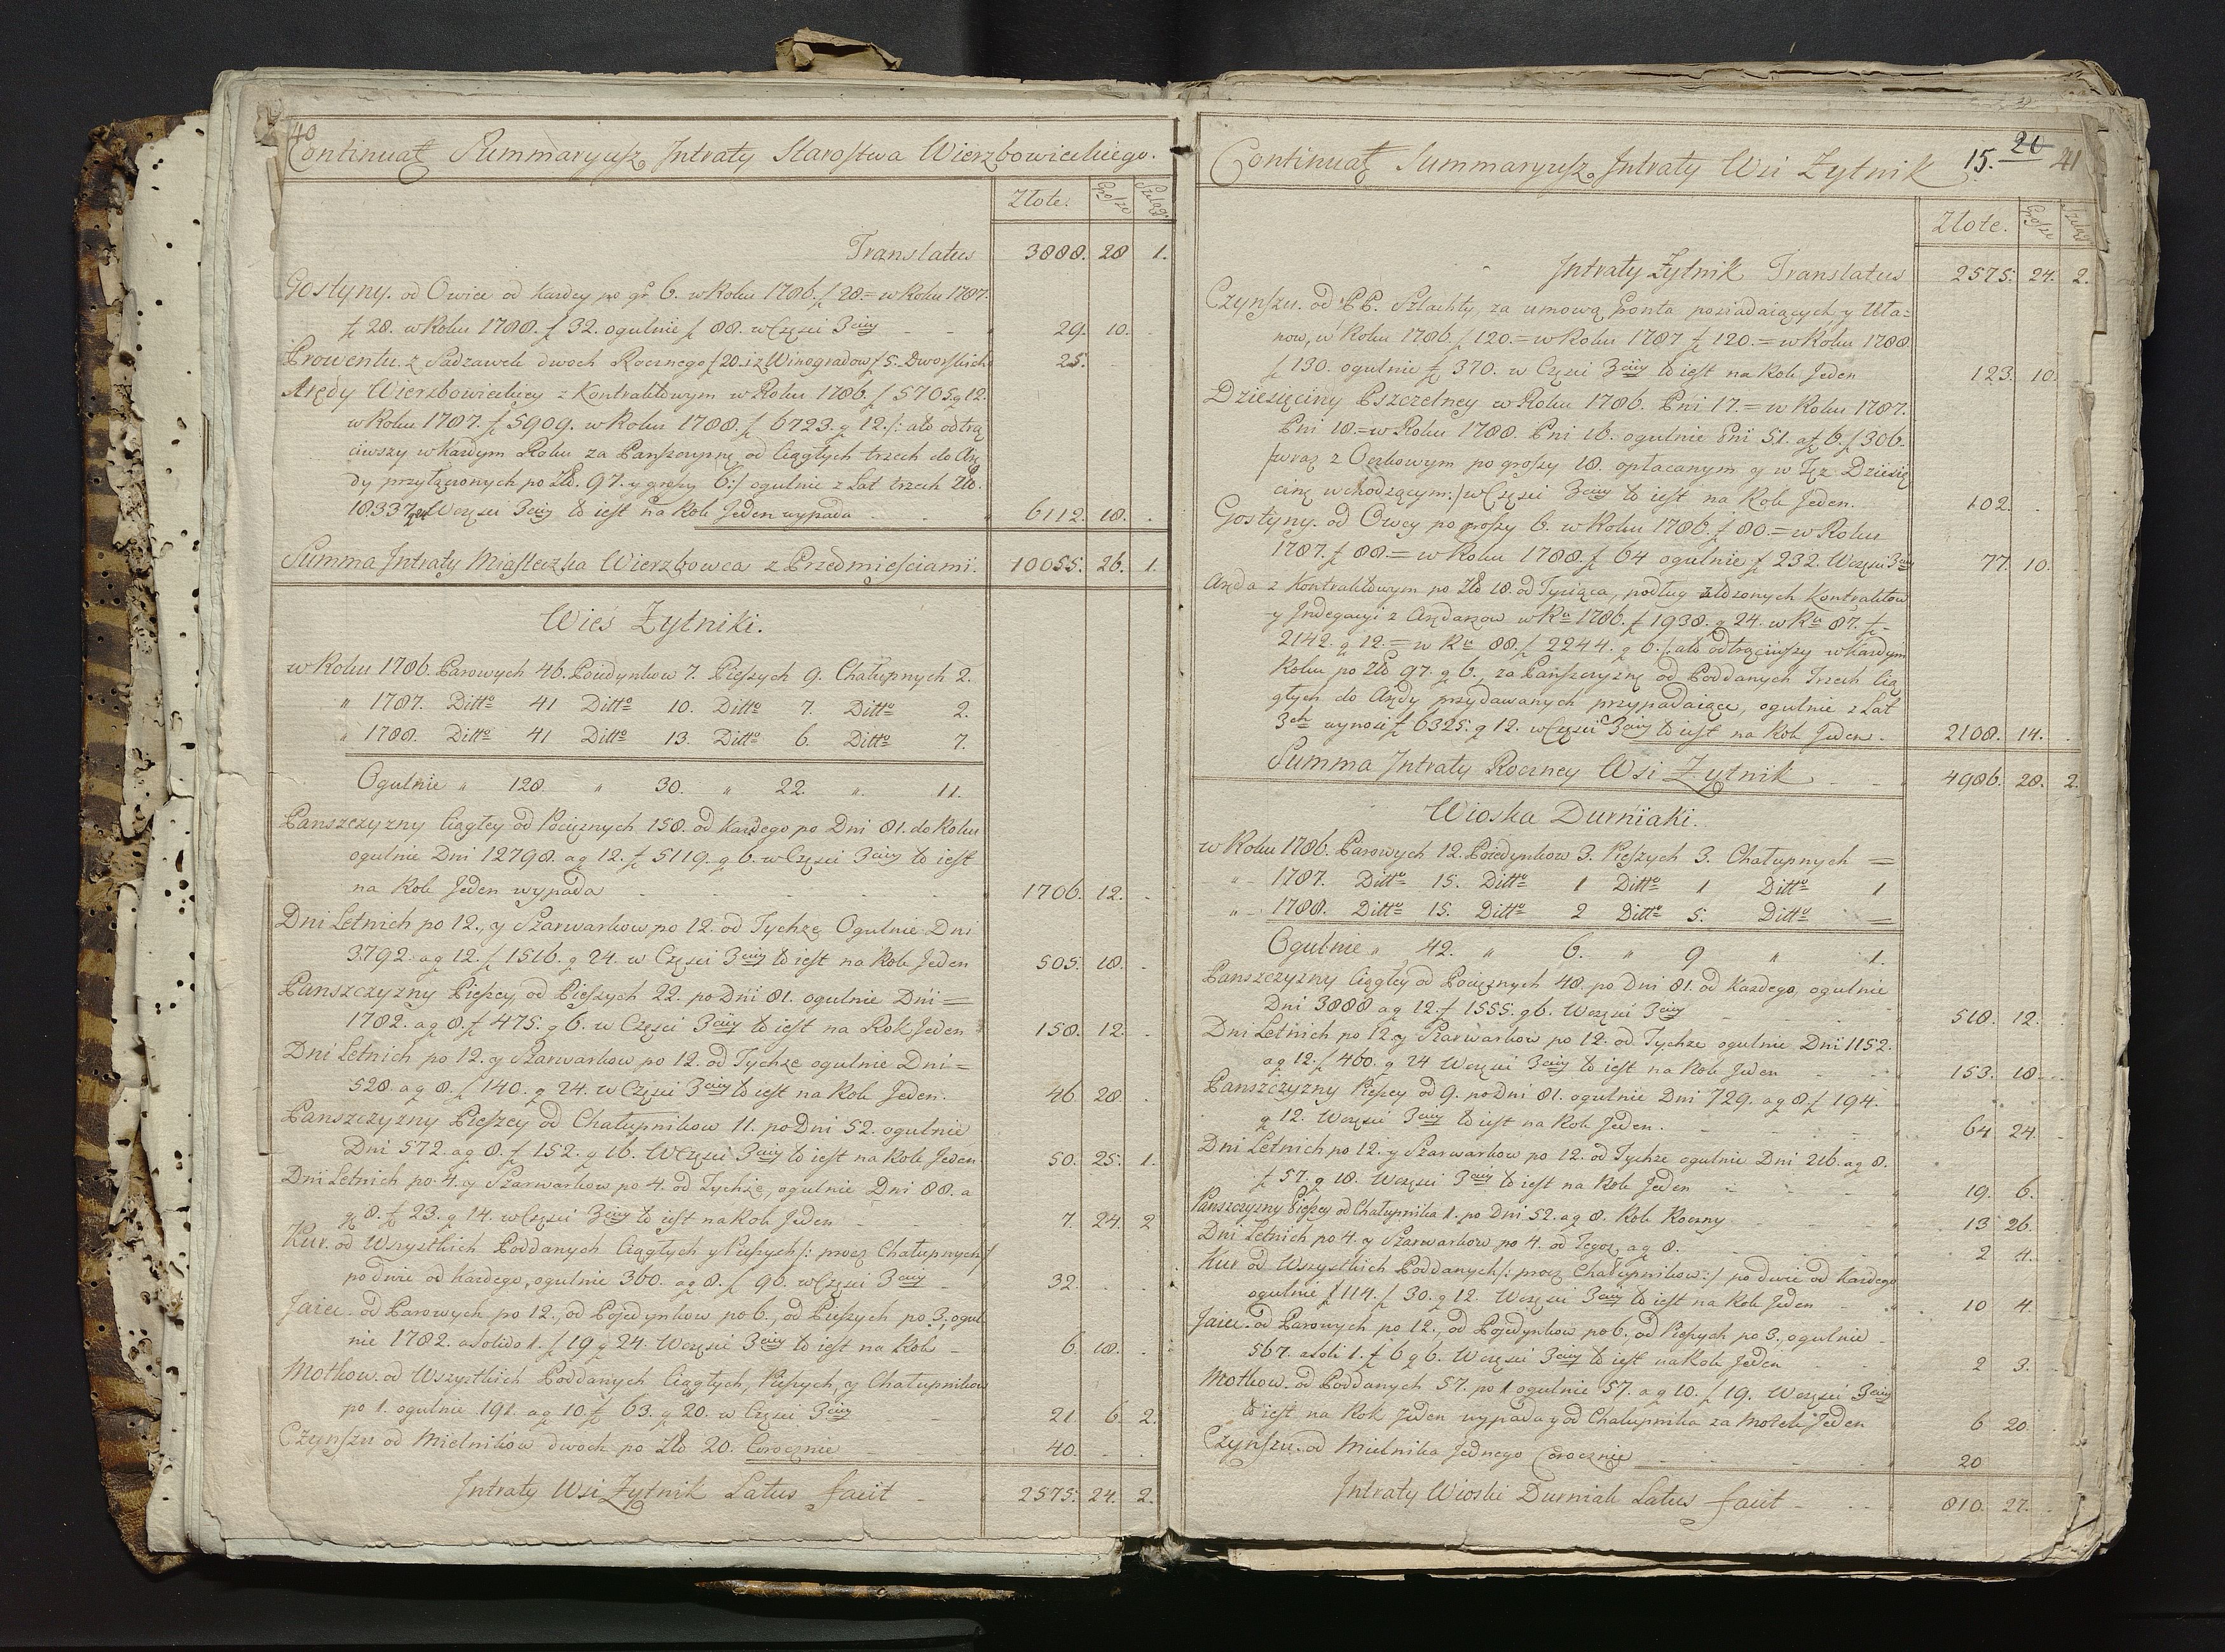 40
Continuat Summaryusz Intraty Starostwa Wierzbowieckiego.
Złote. Grosze Szelągi
Translatus 3888. 28 1.
Gostyny. od Owiec od każdey po gr 6. w Roku 1786. f 28 = w Roku 1787.
f 28. w Roku 1788. f 32. ogulnie f 88. w Części 3ciey 29. 10.
Prowentu z Sadzawek dwoch Rocznego f 20. i z Winogradow f 5. Dworskich 25.
Arędy Wierzbowieckiey z Kontraktowym w Roku 1786. f 5705. g 12.
w Roku 1787. f 5909. w Roku 1788. f 6723. g 12. /: ato odtrą
ciwszy w każdym Roku za Panszczyznę od Ciągłych trzech do Arę
dy przyłączonych po Zło. 97. y groszy 6 :/ ogulnie z Lat trzech Zło.
18337. w Części 3ciey to iest na Rok Jeden wypada 6112. 18.
Summa Intraty Miasteczka Wierzbowca z Przedmieściami. 10055. 26. 1.
Wieś Zytniki.
w Roku 1786. Parowych 46. Poiedynkow 7. Pieszych 9. Chałupnych 2.
" 1787. Ditto 41 Ditto 10. Ditto 7. Ditto 2.
" 1788. Ditto 41 Ditto 13. Ditto 6. Ditto 7.
Ogulnie " 128. " 30. " 22. " 11.
Panszczyzny Ciągłey od Pociężnych 158. od każdego po Dni 81. do Roku
ogulnie Dni 12798. a g 12. f 5119. g 6. w Części 3ciey to iest
na Rok Jeden wypada 1706. 12.
Dni Letnich po 12., y Szarwarkow po 12. od Tychże Ogulnie Dni
3792. a g 12. f 1516. g 24. w Części 3ciey to iest na Rok Jeden 505. 18.
Panszczyzny Pieszey od Pieszych 22. po Dni 81. ogulnie Dni =
1782. a g 8. f 475. g 6. w Części 3ciey to iest na Rok Jeden 158. 12.
Dni Letnich po 12. y Szarwarkow po 12. od Tychże ogulnie Dni =
528. a g 8. f 140. g 24. w Części 3ciey to iest na Rok Jeden. 46 28.
Panszczyzny Pieszey od Chałupnikow 11. po Dni 52. ogulnie
Dni 572. a g 8. f 152. g 16. W Części 3ciey to iest na Rok Jeden 50. 25. 1.
Dni Letnich po 4. y Szarwarkow po 4. od Tychże, ogulnie Dni 88. a
g 8. f 23. g 14. w Części 3ciey to iest na Rok Jeden 7. 24. 2
Kur. od Wszystkich Poddanych Ciągłych y Pieszych /: procz Chałupnych :/
po dwie od każdego, ogulnie 360. a g 8. f 96. w Części 3ciey 32.
Jaiec. od Parowych po 12., od Pojedynkow po 6., od Pieszych po 3. ogul
nie 1782. a solido 1. f 19 g 24. W części 3ciey to iest na Rok 6. 18.
Motkow. od Wszystkich Poddanych Ciągłych, Pieszych, y Chałupnikow
po 1. ogulnie 191. a g 10. f 63. g 20. w Części 3ciey 21. 6. 2.
Czynszu od Mielnikow dwoch po Zło 20. Corocznie 40.
Intraty Wsi Zytnik Latus facit 2575. 24. 2.
Continuat Summaryusz Intraty Wsi Zytnik 15. 20 41
Złote. Grosze Szelągi
Intraty Zytnik Translatus 2575. 24. 2.
Czynszu. od PP. Szlachty, za umową Gronta posiadaiących, y Uła=
now, w Roku 1786. f 120. = w Roku 1787. f 120. = w Roku 1788
f 130. ogulnie f 370. w Części 3ciey to iest na Rok Jeden 123. 10.
Dziesięciny Pszczelney w Roku 1786. Pni 17. = w Roku 1787.
Pni 18. = w Roku 1788. Pni 16. ogulnie Pni 51. a f 6. f 306.
/wraz z Oczkowym po groszy 18. opłacanym y w Tęż Dziesię
cinę wchodzącym :/ w Części 3ciey to iest na Rok Jeden. 102.
Gostyny. od Owcy po groszy 6. w Roku 1786. f 80. = w Roku
1787. f 88. = w Roku 1788. f 64 ogulnie f 232. W części 3ciey 77. 10.
Aręda z Kontraktowym po Zło 18. od Tysiąca, podług złożonych Kontraktow
y Indegacyi z Arędarzow w Ru 1786. f 1938. g 24. w Ru 87. f
2142. g 12. = w Ru 88. f 2244. g 6. /: ato odtrąciwszy w każdym
Roku po Zło 97. g 6., za Panszczyznę od Poddanych Trzech Cią
głych do Arędy przydawanych przypadaiące, ogulnie z Lat
3ch wynosi f 6325. g 12. w Części 3ciey to iest na Rok Jeden. 2108. 14.
Summa Intraty Roczney Wsi Zytnik 4986. 28. 2.
Wioska Durniaki.
w Roku 1786. Parowych 12. Pojedynkow 3. Pieszych 3. Chałupnych =
" 1787. Ditto 15. Ditto 1 Ditto 1 Ditto 1
" 1788. Ditto 15. Ditto 2 Ditto 5. Ditto =
Ogulnie " 42. " 6. " 9 " 1.
Panszczyzny Ciągłey od Pociężnych 48. po Dni 81. od każdego, ogulnie
Dni 3888 a g 12. f 1555. g 6. W części 3ciey 518. 12.
Dni Letnich po 12. y Szarwarkow po 12. od Tychże ogulnie Dni 1152.
a g 12. f 460. g 24 W części 3ciey to iest na Rok Jeden 153. 18.
Panszczyzny Pieszey od 9. po Dni 81. ogulnie Dni 729. a g 8. f 194.
g 12. W części 3ciey to iest na Rok Jeden. 64 24.
Dni Letnich po 12. y Szarwarkow po 12. od Tychże ogulnie Dni 216. a g 8.
f 57. g 18. W części 3ciey to iest na Rok Jeden 19. 6.
Panszczyzny Pieszey od Chałupnika 1. po Dni 52. a g 8. Rok Roczny 13 26.
Dni Letnich po 4. y Szarwarkow po 4. od Tegoż, a g 8. 2 4.
Kur od Wszystkich Poddanych /: procz Chałupnikow :/ po dwie od każdego
ogulnie 114. f 30. g 12. W części 3ciey to iest na Rok Jeden 10 4.
Jaiec. od Parowych po 12., od Pojedynkow po 6. od Pieszych po 3., ogulnie
567. a soli 1. f 6 g 6. W części 3ciey to iest na Rok Jeden 2 3.
Motkow. od Poddanych 57. po 1 ogulnie 57. a g 10. f 19. W części 3ciey
to iest na Rok Jeden wypada y od Chałupnika za Motek Jeden 6 20.
Czynszu. od Mielnika Jednego Corocznie 20
Intraty Wioski Durniak Latus facit 810. 27.